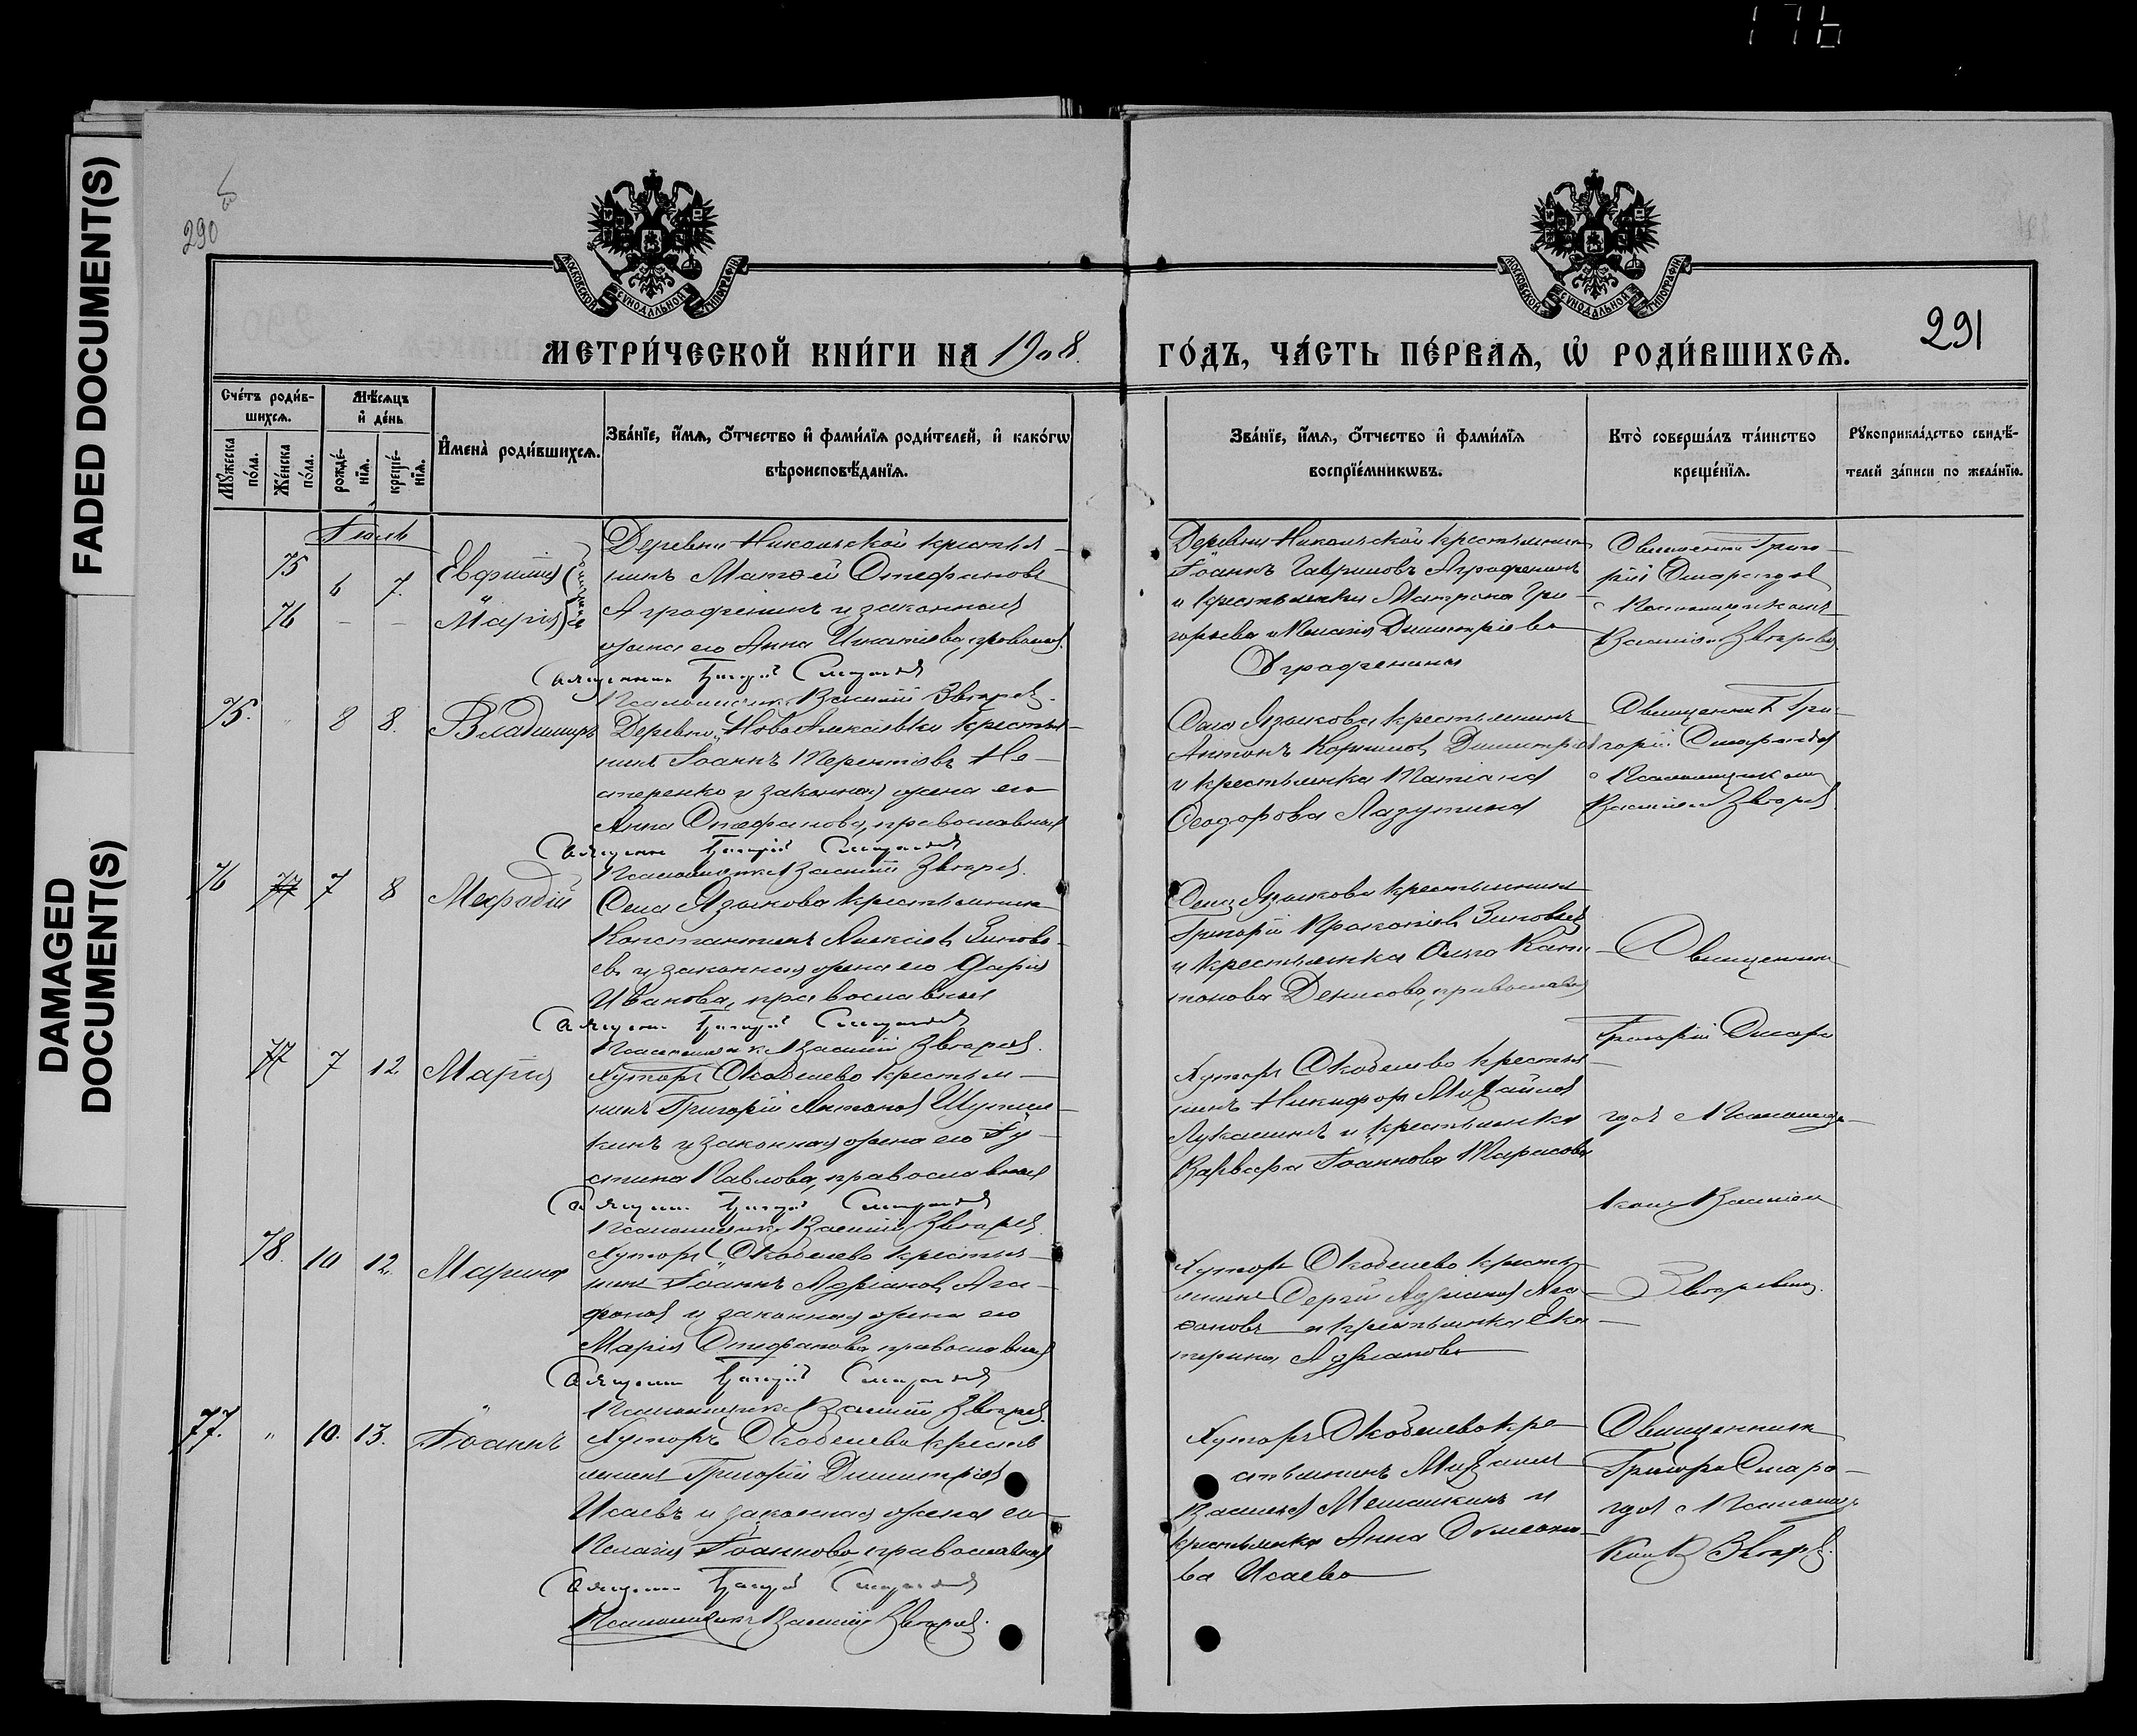 176
FADED DOCUMENT(S)
DAMAGED
DOCUMENT(S)
290
291
МОСКОВСКОЙ СѴНОДАЛЬНОЙ ТИПОГРАФІИ
МОСКОВСКОЙ СѴНОДАЛЬНОЙ ТИПОГРАФІИ
МЕТРИ́ЧЕСКОЙ КНИ́ГИ НА 1908.
ГО́ДЪ, ЧА́СТЬ ПЕ́РВАѦ, Ѡ҆ РОДИ́ВШИХСѦ.
Сче́тъ роди́в-
шихсѧ.
Мꙋжеска
по́ла.
Же́нска
по́ла.
Мѣ́сѧцъ
и҆ де́нь
рожде́-
нїѧ.
креще́-
нїѧ.
И҆мена̀ роди́вшихсѧ.
Зва́нїе, и҆́мѧ, ѻ҆́тчество и҆ фами́лїѧ роди́телей, и҆ како́гѡ
вѣроисповѣ́данїѧ.
Зва́нїе, и҆́мѧ, ѻ҆́тчество и҆ фами́лїѧ
воспрїе́мникѡвъ.
Кто̀ соверша́лъ та́инство
креще́нїѧ.
Рꙋкоприкла́дство свидѣ́-
телей за́писи по жела́нїю.
Іюль
75
76
6 7.
Марія
Деревни Никольской крестья-
нинъ Матѳей Стефановъ
и законная
жена его Анна Игнатіева, православн.
Священникъ Григорій
Псаломщикъ Василій Зверевъ.
Деревни Никольской крестьянинъ
Іоаннъ Гавриловъ
и крестьянка Матрона Гри-
горьева и Пелагія Димитріева
Священникъ Григо-
рій
с Псаломщикомъ
Василіемъ Зверевымъ
75. " 8 8. Владимиръ
Деревни Ново Алексѣевки крестья-
нинъ Іоаннъ Терентіевъ Не-
стеренко и законная жена его
Анна Стефанова, православные
Священникъ Григорій
Псаломщикъ Василій Зверевъ.
Села Языкова крестьянинъ
Антонъ Димитріевъ
и крестьянка Татіана
Ѳеодорова Лазутина
Священникъ Гри-
горій
с Псаломщикомъ
Василіемъ Зверев.
76 77 7 8 Меѳодій
Села Языкова крестьянинъ
Константинъ Алексіевъ Зиновь-
евъ и законная жена его Дарія
Иванова, православные
Священникъ Григорій
Псаломщикъ Василій Зверевъ.
Села Языкова крестьянинъ
Григорій Прокопіевъ Зиновьевъ
и крестьянка Ольга Капи-
тонова Денисова, православн.
Священникъ
77 7 12 Марія
Хуторъ Скобелево крестья-
нинъ Григорій Антоновъ
и законная жена его Іу-
стина Павлова, православные
Священникъ Григорій
Псаломщикъ Василій Зверевъ.
Хуторъ Скобелево крестья-
нинъ Никифоръ Михайловъ
Лукашинъ и крестьянка
Варвара Іоаннова Тарасова
Григорій
комъ Василіемъ
78. 10 12. Марина
Хуторъ Скобелево крестья-
нинъ Іоаннъ Адріановъ Ага-
фоновъ и законная жена его
Марія Стефанова, православные
Священникъ Григорій
Псаломщикъ Василій Зверевъ.
Хуторъ Скобелево крестья-
нинъ Сергій Адріановъ Ага-
ѳоновъ и крестьянка Ека-
терина Адріанова
Зверевымъ.
77. " 10. 13. Іоаннъ
Хуторъ Скобелево кресть
янинъ Григорій Димитріевъ
Исаевъ и законная жена его
Пелагія Іоаннова, православные
Священникъ Григорій
Псаломщикъ Василій Зверевъ.
Хуторъ Скобелево кре-
стьянинъ Михаилъ
Васильевъ и
крестьянка Анна
ва Исаева
Священникъ
Григорій
с Псаломщи-
Зверев.